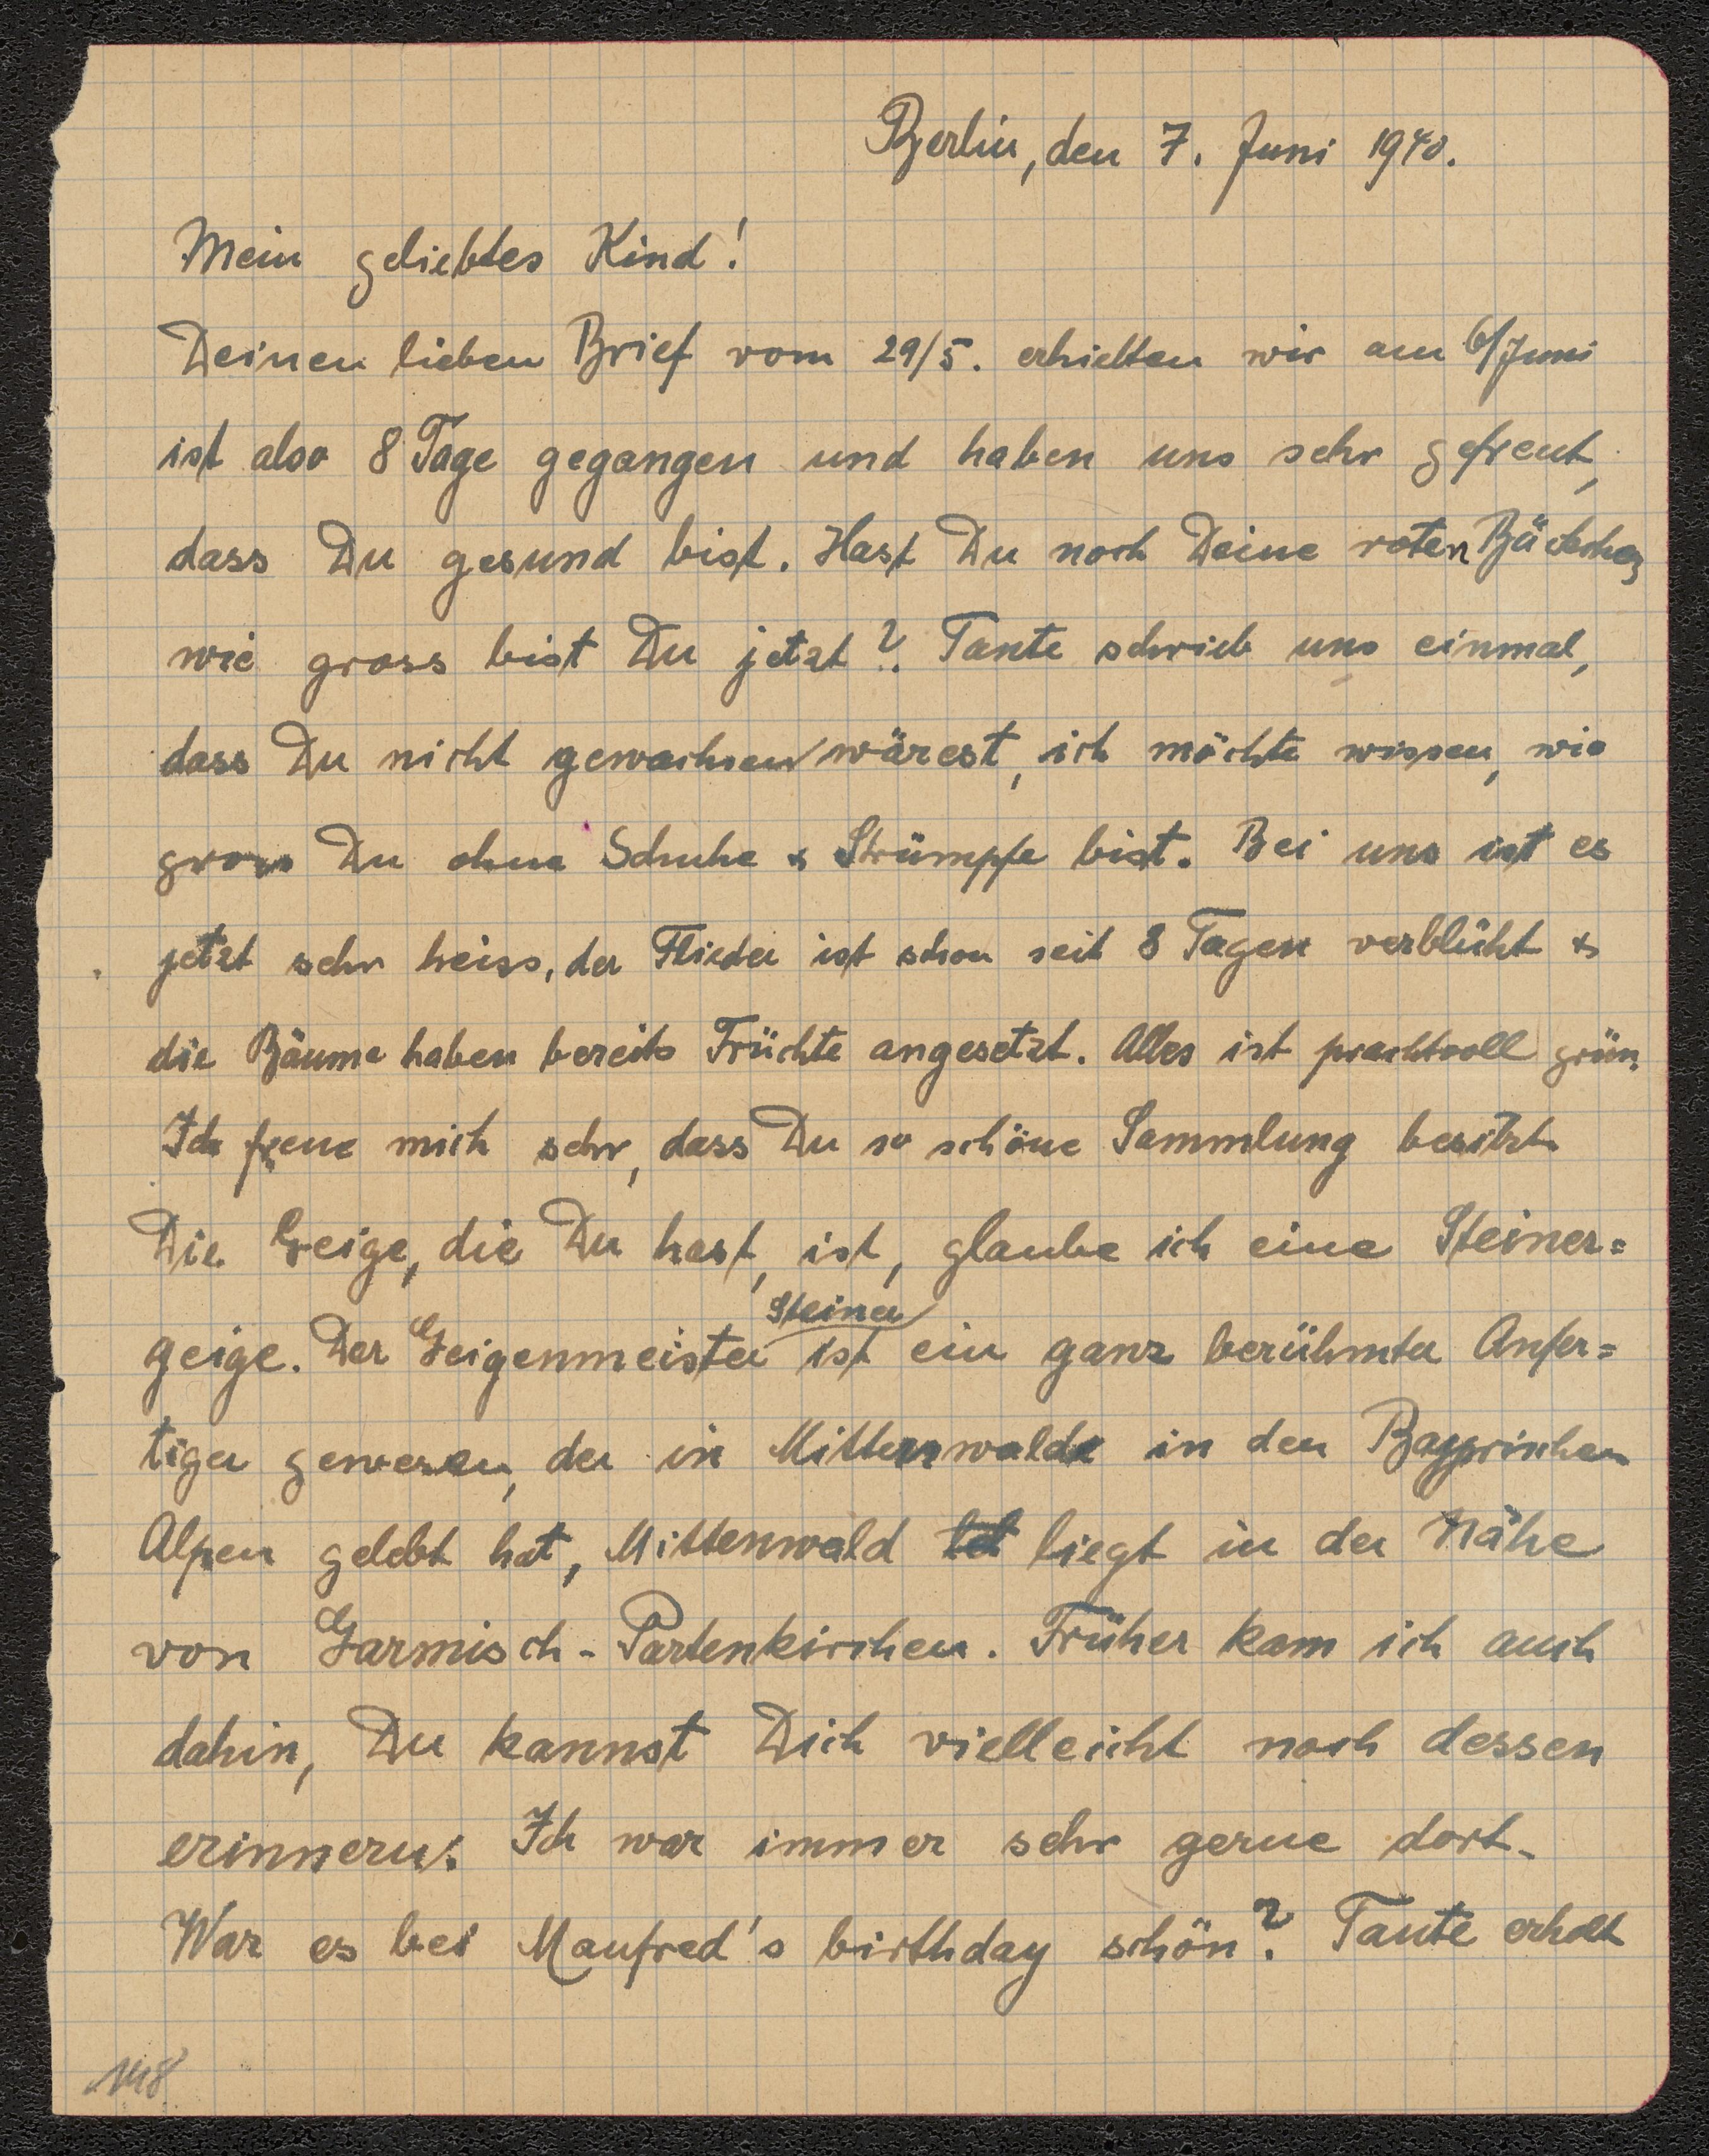 Berlin, den 7. Juni 1940.
Mein geliebtes Kind!
Deinen lieben Brief vom 29/5. erhielten wir am 6/Juni
ist also 8 Tage gegangen und haben uns sehr gefreut,
dass Du gesund bist. Hast Du noch Deine roten Bäckchen,
wie gross bist Du jetzt? Tante schrieb uns einmal,
dass Du nicht gewachsen wärest, ich möchte wissen, wie
gross Du ohne Schuhe & Strümpfe bist. Bei uns ist es
jetzt sehr heiss, der Flieder ist schon seit 8 Tagen verblüht &
die Bäume haben bereits Früchte angesetzt. Alles ist prachtvoll grün.
Ich freue mich sehr, dass Du so schöne Sammlung besitzt.
Die Geige, die Du hast, ist, glaube ich eine Steiner=
geige. Der Geigenmeister Steiner ist ein ganz berühmter Anfer=
tiger gewesen, der in Mittenwalde in den Bayrischen
Alpen gelebt hat, Mittenwald liegt in der Nähe
von Garmisch-Partenkirchen. Früher kam ich auch
dahin, Du kannst Dich vielleicht noch dessen
erinnern. Ich war immer sehr gerne dort.
War es bei Manfred's birthday schön? Tante erholt
148